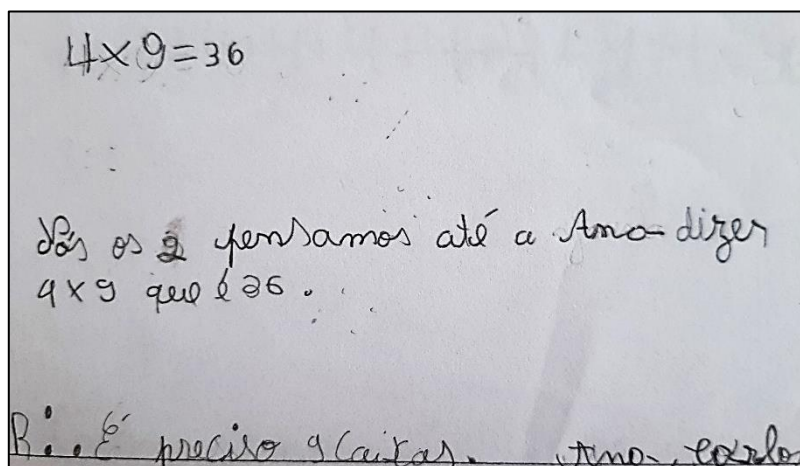 4x9=36
Nós os 2 pensamos até a Ana dizer
4x9 que é 36.
R:. É preciso 9 caixas. Ana